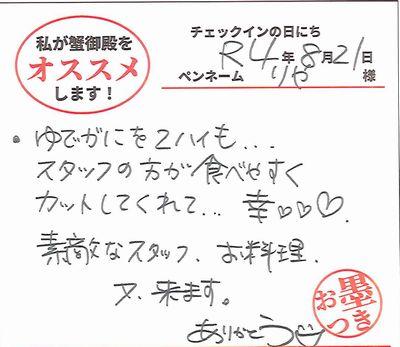 私が蟹御殿を
オススメ
します！
チェックインの日にち
R4年8月21日
ペンネーム りや 様
・ゆでがにを2ハイも...
スタッフの方が食べやすく
カットしてくれて... 幸♡♡♡.
素敵なスタッフ、お料理、
又、来ます。
ありがとう
お墨つき